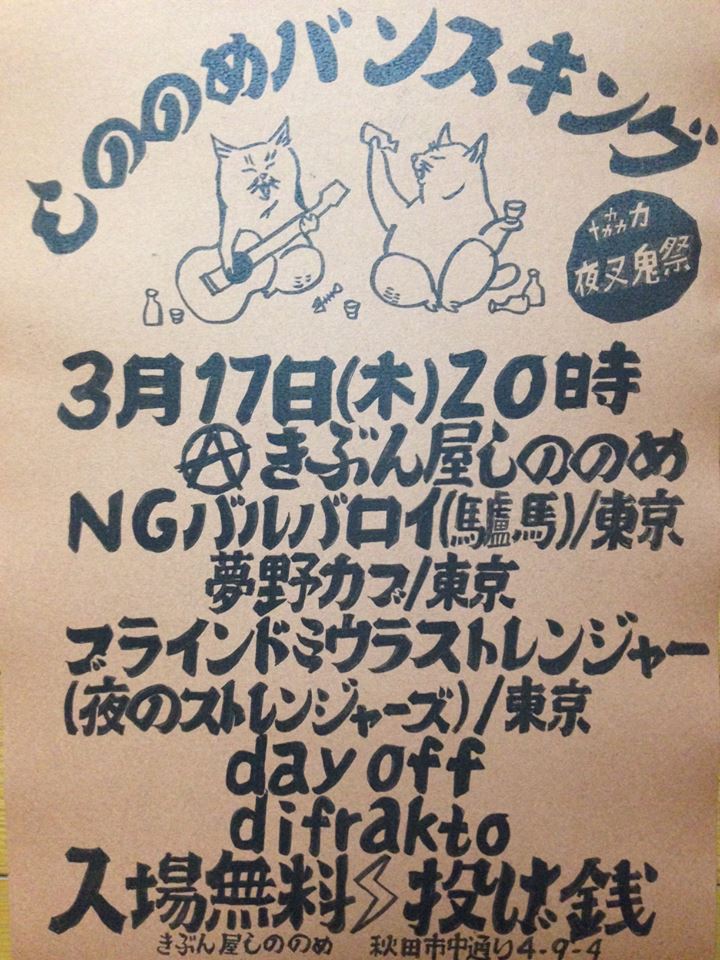 しののめバンスキング
協力
夜叉鬼祭
3月17日(木)20時
Ⓐきぶん屋しののめ
NGバルバロイ(驢馬)/東京
夢野カブ/東京
ブラインドミウラストレンジャー
(夜のストレンジャーズ)/東京
day off
difrakto
入場無料 投げ銭
きぶん屋しののめ 秋田市中通り4-9-4